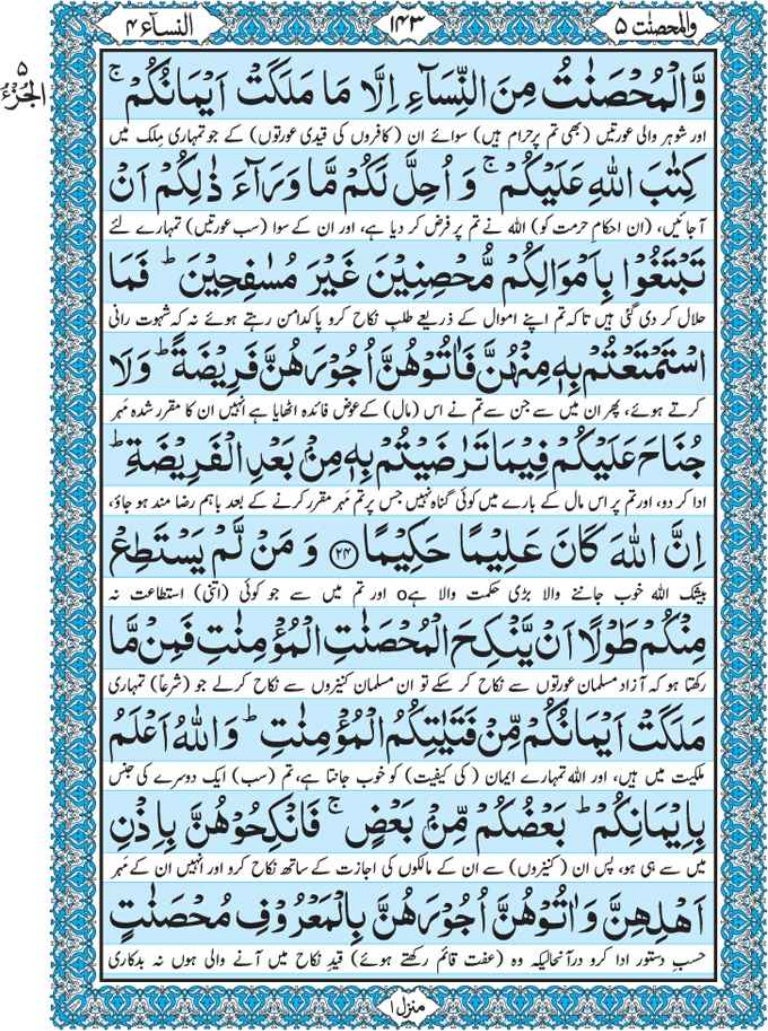 والمحصنت ٥
١٤٣
النسآء ٤
الجزء ٥
وَّالۡمُحۡصَنٰتُ مِنَ النِّسَآءِ اِلَّا مَا مَلَكَتۡ اَيۡمَانُكُمۡ ۚ
اور شوہر والی عورتیں (بھی تم پرحرام ہیں) سوائے ان (کافروں کی قیدی عورتوں) کے جو تمہاری مِلک میں
كِتٰبَ اللّٰهِ عَلَيۡكُمۡ ۚ وَ اُحِلَّ لَكُمۡ مَّا وَرَآءَ ذٰلِكُمۡ اَنۡ
آ جائیں، (ان احکامِ حرمت کو) اللہ نے تم پر فرض کر دیا ہے، اور ان کے سوا (سب عورتیں) تمہارے لئے
تَبۡتَغُوۡا بِاَمۡوَالِكُمۡ مُّحۡصِنِيۡنَ غَيۡرَ مُسٰفِحِيۡنَ ؕ فَمَا
حلال کر دی گئی ہیں تاکہ تم اپنے اموال کے ذریعے طلبِ نکاح کرو پاکدامن رہتے ہوئے نہ کہ شہوت رانی
اسۡتَمۡتَعۡتُمۡ بِهٖ مِنۡهُنَّ فَاٰتُوۡهُنَّ اُجُوۡرَهُنَّ فَرِيۡضَةً ؕ وَلَا
کرتے ہوئے، پھر ان میں سے جن سے تم نے اس (مال) کے عوض فائدہ اٹھایا ہے انہیں ان کا مقرر شدہ مَہر
جُنَاحَ عَلَيۡكُمۡ فِيۡمَا تَرٰضَيۡتُمۡ بِهٖ مِنۡۢ بَعۡدِ الۡفَرِيۡضَةِ ؕ
ادا کر دو، اور تم پر اس مال کے بارے میں کوئی گناہ نہیں جس پر تم مَہر مقرر کرنے کے بعد باہم رضا مند ہو جاؤ،
اِنَّ اللّٰهَ كَانَ عَلِيۡمًا حَكِيۡمًا ﴿۲۴﴾ وَ مَنۡ لَّمۡ يَسۡتَطِعۡ
بیشک اللہ خوب جاننے والا بڑی حکمت والا ہےo اور تم میں سے جو کوئی (اتنی) استطاعت نہ
مِنۡكُمۡ طَوۡلًا اَنۡ يَّنۡكِحَ الۡمُحۡصَنٰتِ الۡمُؤۡمِنٰتِ فَمِنۡ مَّا
رکھتا ہو کہ آزاد مسلمان عورتوں سے نکاح کر سکے تو ان مسلمان کنیزوں سے نکاح کرلے جو (شرعاً) تمہاری
مَلَكَتۡ اَيۡمَانُكُمۡ مِّنۡ فَتَيٰتِكُمُ الۡمُؤۡمِنٰتِ ؕ وَاللّٰهُ اَعۡلَمُ
ملکیت میں ہیں، اور اللہ تمہارے ایمان (کی کیفیت) کو خوب جانتا ہے، تم (سب) ایک دوسرے کی جنس
بِاِيۡمَانِكُمۡ ؕ بَعۡضُكُمۡ مِّنۡۢ بَعۡضٍ ۚ فَانۡكِحُوۡهُنَّ بِاِذۡنِ
میں سے ہی ہو، پس ان (کنیزوں) سے ان کے مالکوں کی اجازت کے ساتھ نکاح کرو اور انہیں ان کے مَہر
اَهۡلِهِنَّ وَاٰتُوۡهُنَّ اُجُوۡرَهُنَّ بِالۡمَعۡرُوۡفِ مُحۡصَنٰتٍ
حسبِ دستور ادا کرو درآنحالیکہ وہ (عفت قائم رکھتے ہوئے) قیدِ نکاح میں آنے والی ہوں نہ بدکاری
منزل ١